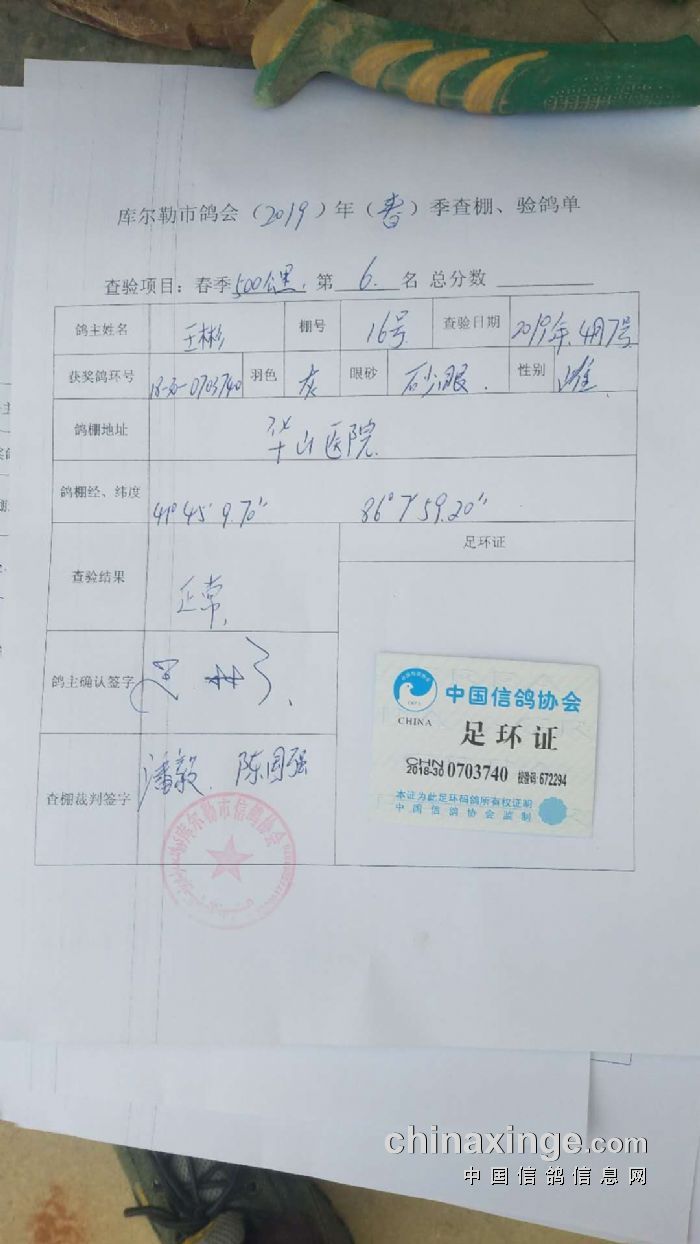 库尔勒市鸽会（2019）年（春）季查棚、验鸽单
查验项目：春季500公里. 第 6. 名 总分数
鸽主姓名 王彬 棚号 16号 查验日期 2019年.4月7号
获奖鸽环号 18-30-0703740 羽色 灰 眼砂 砂眼. 性别 雄.
鸽棚地址 华山医院.
鸽棚经、纬度 41° 45' 9.70'' 86° 7' 59.20''
查验结果 正常. 足环证
鸽主确认签字
查棚裁判签字 潘毅. 陈国强
库尔勒市信鸽协会
中国信鸽协会
CHINA
足环证
CHN
2018-30 0703740 校验码 672294
本证为此足环码鸽所有权证明
中国信鸽协会监制
chinaxinge.com
中国信鸽信息网